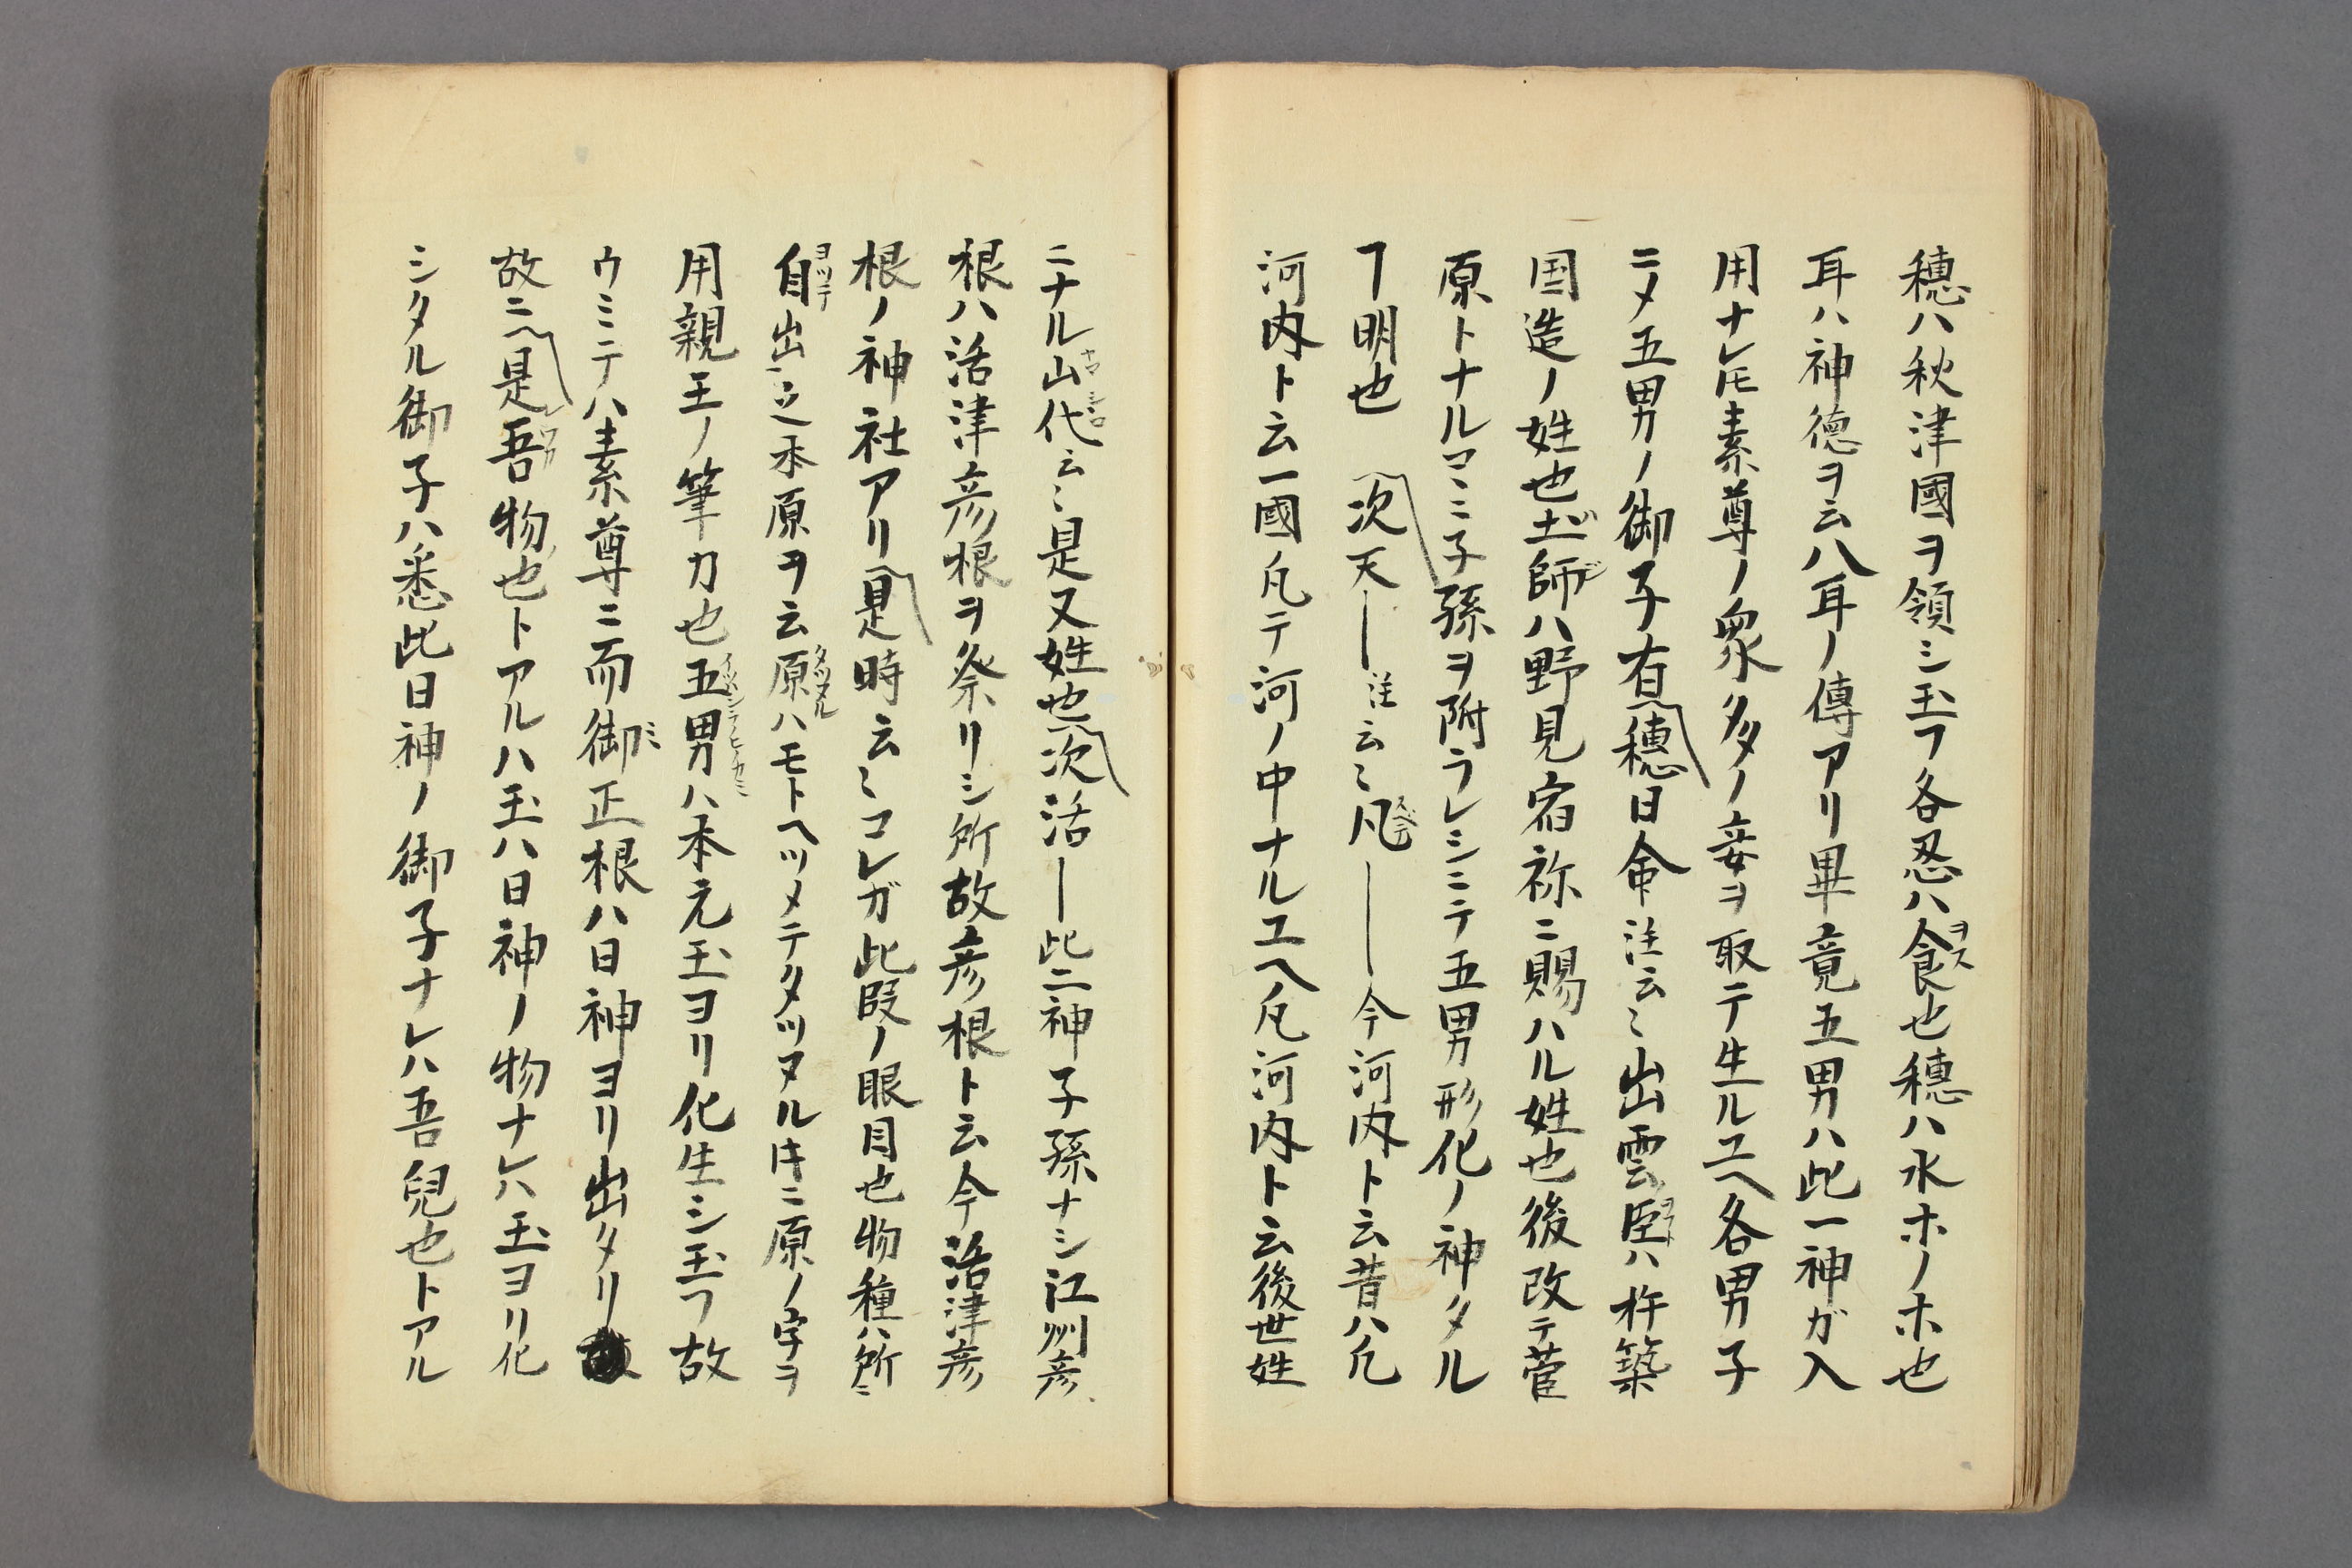 穗ハ秋津國ヲ領シ玉フ各忍ハ食也穗ハ水ホノホ也
耳ハ神德ヲ云八耳ノ傳アリ畢竟五男ハ此一神ガ入
用ナレ𪜈素尊ノ衆多ノ妾ヲ取テ生ルユヘ各男子
ニ〆五男ノ御子有穗日命注云〻出雲臣ハ杵築
国造ノ姓也土師ハ野見宿祢ニ賜ハル姓也後改テ菅
原トナルコヽニ子孫ヲ附ラレシニテ五男形化ノ神タル
ヿ明也 次天―注云〻凡――今河内ト云昔ハ凡
河内ト云一國凡テ河ノ中ナルユヘ凡河内ト云後世姓
ニナル山代云〻是又姓也次活―此二神子孫ナシ江州彦
根ハ活津彦根ヲ祭リシ所故彦根ト云今活津彦
根ノ神社アリ是時云〻コレガ此段ノ眼目也物種ハ所ニ
自出之本原ヲ云原ハモトヘツメテタツヌル𪜈ニ原ノ字ヲ
用親王ノ筆力也五男ハ本元玉ヨリ化生シ玉フ故
ウミテハ素尊ニ而御正根ハ日神ヨリ出タリ
故ニ是吾物也トアルハ玉ハ日神ノ物ナレハ玉ヨリ化
シタル御子ハ悉此日神ノ御子ナレハ吾兒也トアル